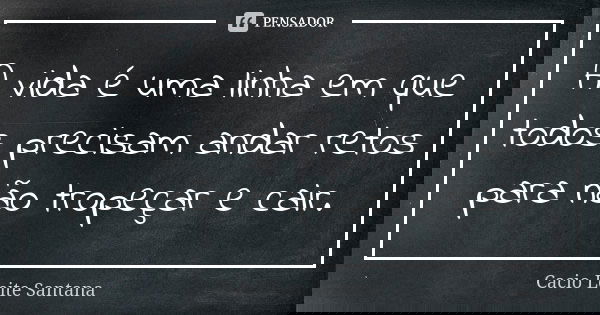 PENSADOR
A vida é uma linha em que
todos precisam andar retos
para não tropeçar e cair.
Cacio Leite Santana